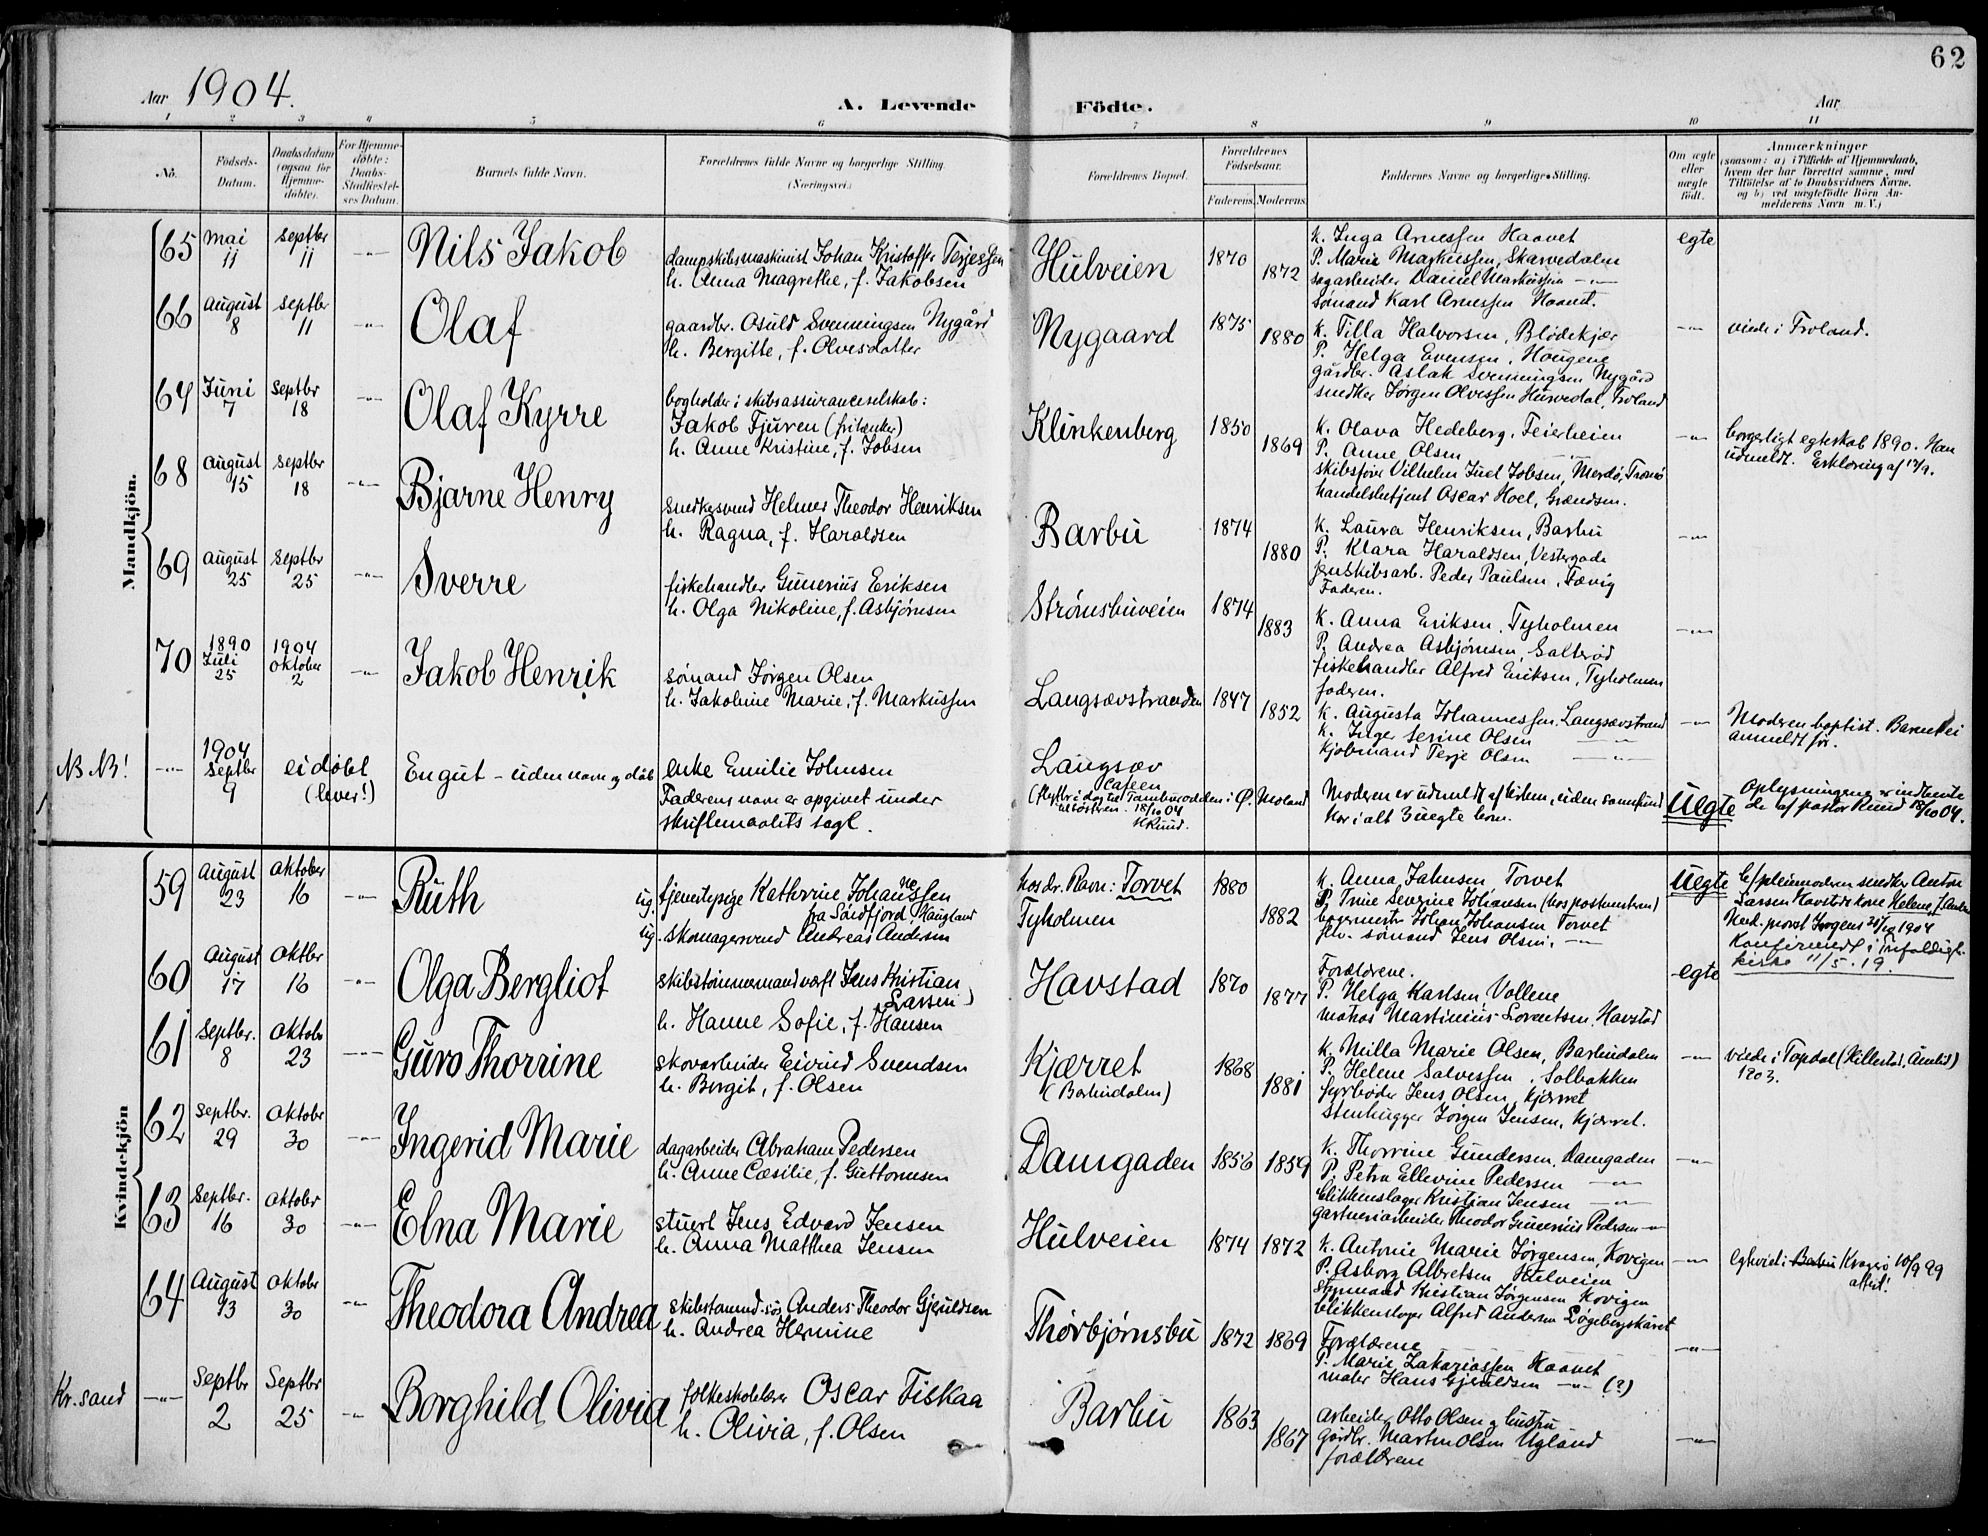 62
Aar 1904.
A. Levende Födte.
Aar
1 2 3 4 5 6 7 8 9 10 11
No.
Födsels-Datum.
Daabsdatum (ogsaa for Hjemme-døbte).
For Hjemme-döbte: Daabs-Stadfæstel-ses Datum.
Barnets fulde Navn.
Forældrenes fulde Navne og borgerlige Stilling. (Næringsvei.)
Forældrenes Bopæl.
Forældrenes Födselsaar.
Faderens. Moderens.
Faddernes Navne og borgerlige Stilling.
Om ægte eller uægte født.
Anmærkninger
(saasom: a) i Tilfælde af Hjemmedaab,
hvem der har forrettet samme, med
Tilföielse af to Daabsvidners Navne,
og b) ved uægtefödte Börn An-
melderens Navn m. V.)
Mandkjön.
65 Mai 11 Septbr 11 -"- Nils Jakob
dampskibsmaskinist Johan Kristoffer Terjessen
h. Anna Magrethe, f. Jakobsen
Hulveien 1870 1872
K. Inga Arnessen Haavet
P. Marie Markussen, Skarvedalen
sagarbeider Daniel Markussen -"-
sømand Karl Arnessen Haavet.
egte
66 August 8 Septbr 11 -"- Olaf
gaardbr. Osuld Svenningsen Nygård
h. Bergitte, f. Olvesdatter
Nygaard 1875 1880
K. Tilla Halvorsen, Blödekjær
P. Helga Evensen, Haugene
gårdbr. Aslak Svenningsen Nygård
snedker Jørgen Olvessen Husvedal, Froland
-"- viede i Froland.
67 Juni 7 Septbr 18 -"- Olaf Kyrre
bogholder i skibsassuranceselskab:
Jakob Fjuren (fritænker)
h. Anne Kristine, f. Jobsen
Klinkenberg 1850 1869
K. Olava Hedeberg, Feierheien
P. Anne Olsen -"-
skibsfører Vilhelm Juel Jobsen, Merdø, Tromø
handelsbetjent Oscar Hoel, Grændsen.
-"- borgerligt egteskab 1890. Han
udmeldt. Erklæring af 17/9.
68 August 15 Septbr 18 -"- Bjarne Henry
snedkersvend Helmer Theodor Henriksen
h. Ragna, f. Haraldsen
Barbu 1874 1880
K. Laura Henriksen, Barbu
P. Klara Haraldsen, Vestergade
jernskibsarb. Peder Paulsen, Fævig
Faderen.
-"-
69 August 25 Septbr 25 -"- Sverre
fiskehandler Gunerius Eriksen
h. Olga Nikoline, f. Asbjørnsen
Strømsbuveien 1874 1883
K. Anna Eriksen, Tyholmen
P. Andrea Asbjørnsen, Salterød
fiskehandler Alfred Eriksen, Tyholmen
faderen.
-"-
70 1890 Juli 25 1904 Oktober 2 -"- Jakob Henrik
sømand Jørgen Olsen
h. Jakobine Marie, f. Markussen
Langsævstranden 1847 1852
K. Augusta Johannessen, Langsævstrand
K. Inger Serine Olsen -"-
kjøbmand Terje Olsen -"-
-"- Moderen baptist. Barnet ei
anmeldt før.
NB NB! -"- 1904 Septbr 9 ei døbt (lever!) En gut - uden navn og dåb
enke Emilie Johnsen
Faderens navn er opgivet under
skriftemaalets segl.
Langsæv
(flytter i dag til Tamburodden i Ø. Moland
18/10 04
Ruud.
Moderen er udmeldt af kirken, uden samfund
Har i alt 3 uegte børn.
Uegte
Oplysningene er indhente
de af pastor Ruud 18/10 04.
Kvindekjön
59 August 23 Oktober 16 -"- Ruth
ug. tjenestepige Kathrine Johannessen
fra Søndfjord, Haugland
ug. skomagersvend Andreas Andersen
hos dr. Ravn: Torvet
Tyholmen 1880 1882
K. Anna Jahnsen Torvet
P. Trine Severine Johansen (hos postmestren)
bøgermester Johan Johansen Torvet
flv. sømand Jens Olsen, -"-
Uegte
E/pleiemoderen snedker Anton
Larssen Havstads kone Helene, f. Anders
Ned. provst Jørgens 25/10 1904
Konfirmeret i Trefoldigh.
kirke 11/5.19.
60 August 17 Oktbr 16 -"- Olga Bergliot
skibstømmermand værft Jens Kristian
Larsen
h. Hanne Sofie, f. Hansen
Havstad 1870 1877
Forældrene.
P. Helga Karlsen, Vollene
matros Martinius Lorentsen, Havstad
egte
61 Septbr. 8 Oktobr 23 -"- Guro Thorrine
skovarbeider Eivind Svendsen
h. Borgit, f. Olsen
Kjærret
(Barbudalen) 1868 1881
K. Milla Marie Olsen, Barbudalen
P. Helene Salvessen, Solbakken
fyrbøder Jens Olsen, Kjærret
stenhugger Jørgen Jensen, Kjærret.
-"- viede i Topdal (Hillestad, Åmlid)
1903.
62 Septbr. 29 Oktobr 30 -"- Ingerid Marie
dagarbeider Abraham Pedersen
h. Anne Cæsilie, f. Guttormsen
Damgaden 1856 1859
K. Thorrine Gundersen, Damgaden
P. Petra Ellevine Pedersen -"-
blikkenslager Kristian Jensen -"-
gartneriarbeider Theodor Gunerius Pedersen -"-
-"-
63 Septbr. 16 Oktobr 30 -"- Elna Marie
stuert Jens Edvard Jensen
h. Anna Matthea Jensen
Hulveien 1874 1872
K. Antonie Marie Jørgensen, Kovigen
P. Asborg Albretsen Hulveien
styrmand Kristian Jørgensen Kovigen
blikkenslager Alfred Andersen Løgebergskåret
-"- egteviet i Barbu Kragerø 10/9 99
attest!
64 August 13 Oktobr 30 -"- Theodora Andrea
skibstømmd. søs Anders Theodor Gjeruldsen
h. Andrea Hermine
Thorbjørnsbu 1872 1869
Forældrene
P. Marie Zakariassen Haavet
maler Hans Gjeruldsen -"- (?)
-"-
Kr.sand -"- Septbr 2 Septbr 25 -"- Borghild Olivia
folkeskolelærer Oscar Fiskaa
h. Olivia, f. Olsen
Barbu 1863 1867
Arbeider Otto Olsen og hustru
Gårdbr. Marten Olsen Ugland
forældrene
-"-